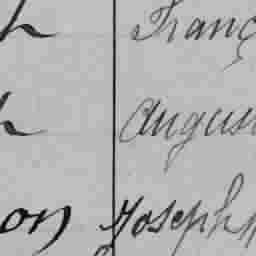 h Franç
h August
on Joseph